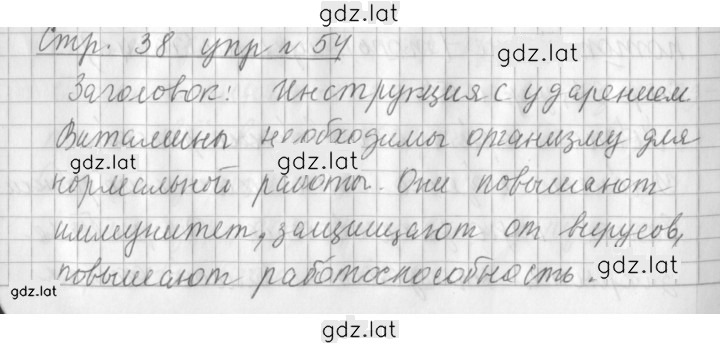 gdz.lat
Стр. 38 упр № 54
gdz.lat
Заголовок: Инструкция с ударением
gdz.lat
Витамины необходимы организму для
gdz.lat gdz.lat
нормальной работы. Они повышают
иммунитет, защищают от вирусов,
gdz.lat
повышают работоспособность.
gdz.lat
gdz.lat